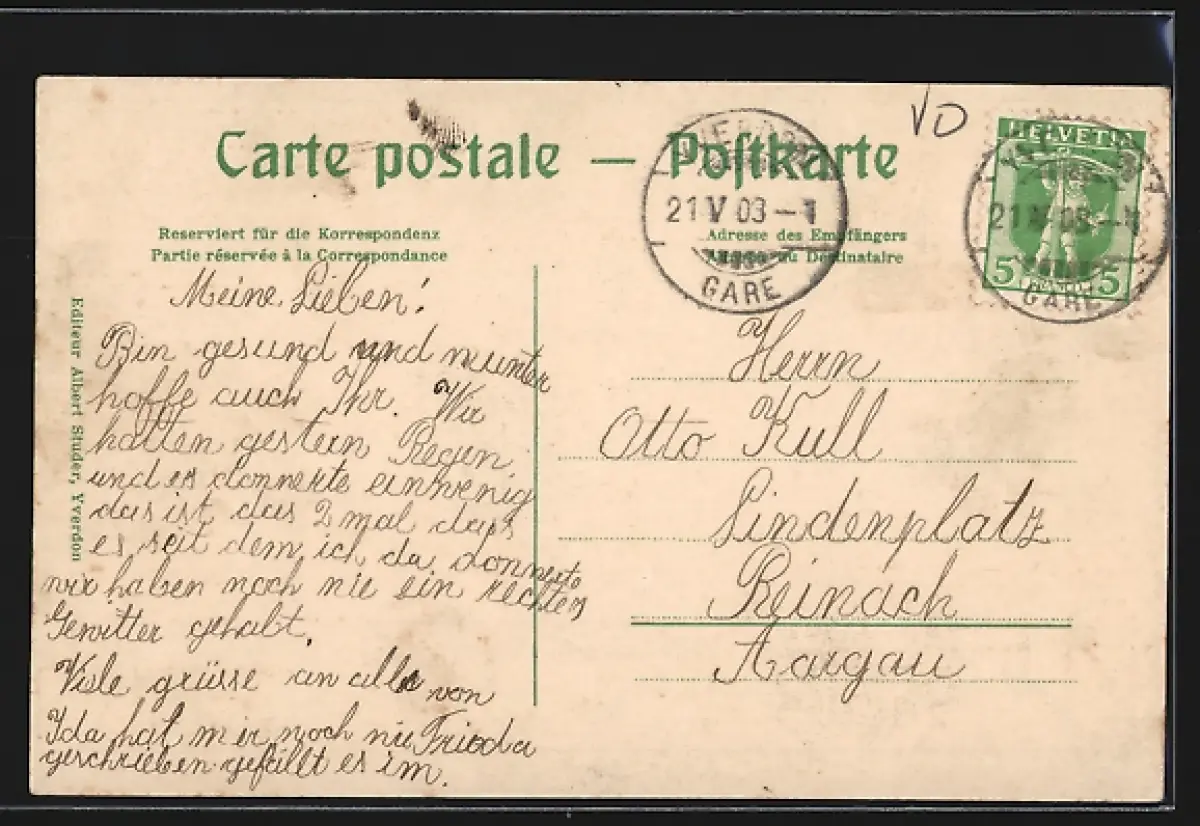 Carte postale — Postkarte
VD
HELVETIA
5 5
YVERDON
21 V 08 – 1
GARE
21 V 08 – 1
GARE
Reserviert für die Korrespondenz
Partie réservée à la Correspondance
Adresse des Empfängers
Adresse du Destinataire
Editeur Albert Studer, Yverdon
Meine Lieben!
Bin gesund und munter
hoffe auch Ihr. Wir
hatten gestern Regen
und es donnerte einwenig
das ist das 2 mal dass
es seit dem ich da donnerte
wir haben noch nie ein rechtes
Gewitter gehabt.
Viele grüsse an alle von
Frieda
Ida hat mir noch nie
geschrieben gefällt es im.
Herrn
Otto Kull
Lindenplatz
Reinach
Aargau